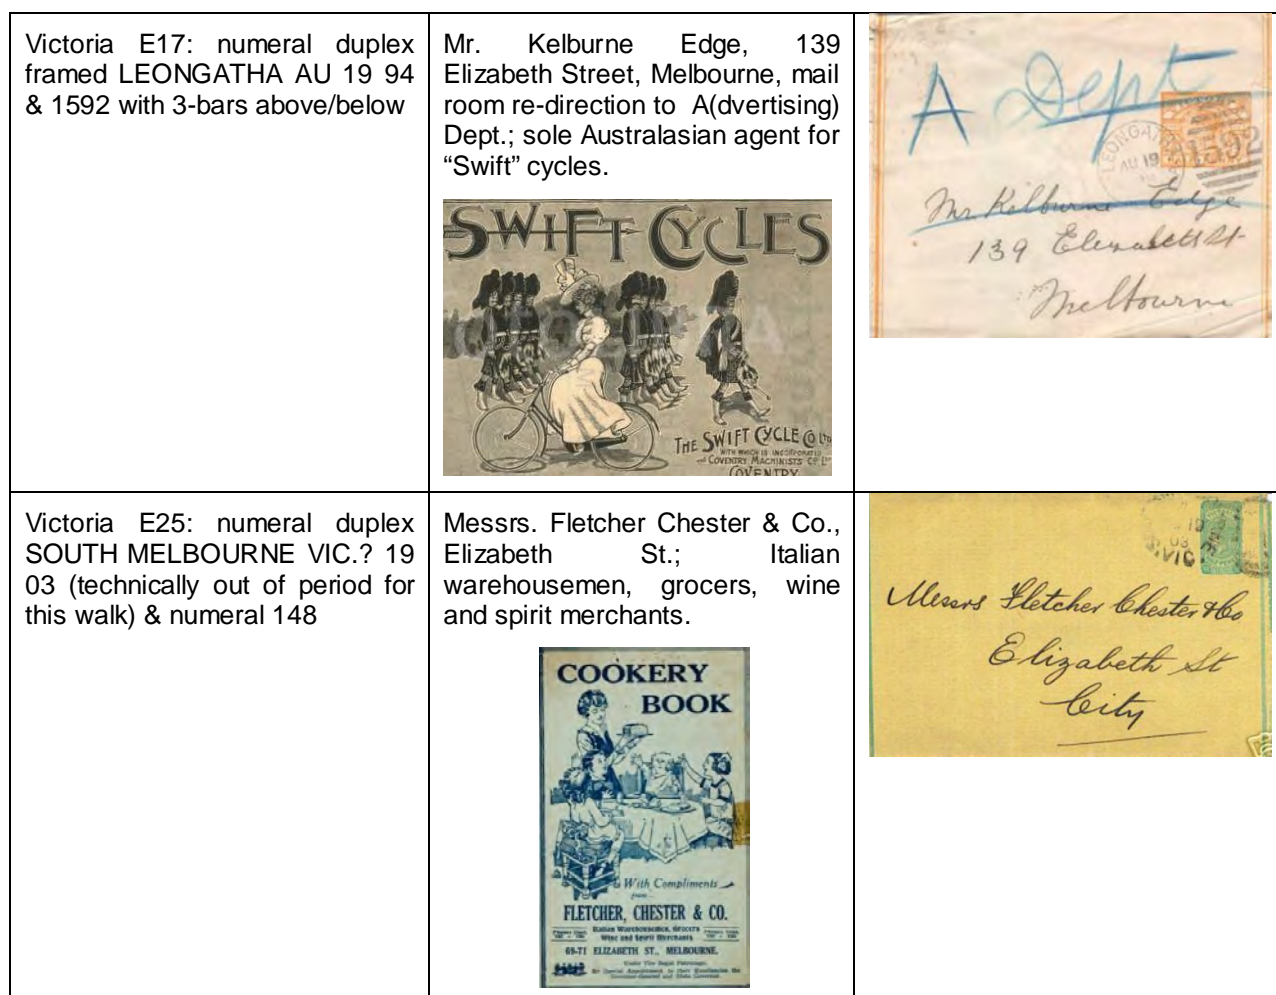 Victoria E17: numeral duplex
framed LEONGATHA AU 19 94
& 1592 with 3-bars above/below
Mr. Kelburne Edge, 139
Elizabeth Street, Melbourne, mail
room re-direction to A(dvertising)
Dept.; sole Australasian agent for
“Swift” cycles.
SWIFT CYCLES
THE SWIFT CYCLE CO LTD
WITH WHICH IS INCORPORATED
COVENTRY MACHINISTS CO LTD
COVENTRY
A Dept
LEONGATHA
AU 19
1592
Mr Kelburne Edge
139 Elizabeth St
Melbourne
Victoria E25: numeral duplex
SOUTH MELBOURNE VIC.? 19
03 (technically out of period for
this walk) & numeral 148
Messrs. Fletcher Chester & Co.,
Elizabeth St.; Italian
warehousemen, grocers, wine
and spirit merchants.
COOKERY
BOOK
With Compliments
from
FLETCHER, CHESTER & CO.
Italian Warehousemen, Grocers
Wine and Spirit Merchants
69-71 ELIZABETH ST., MELBOURNE.
Under Vice Regal Patronage.
By Special Appointment to their Excellencies the
Governor-General and State Governor.
19
03
VIC
Messrs Fletcher Chester & Co
Elizabeth St
City